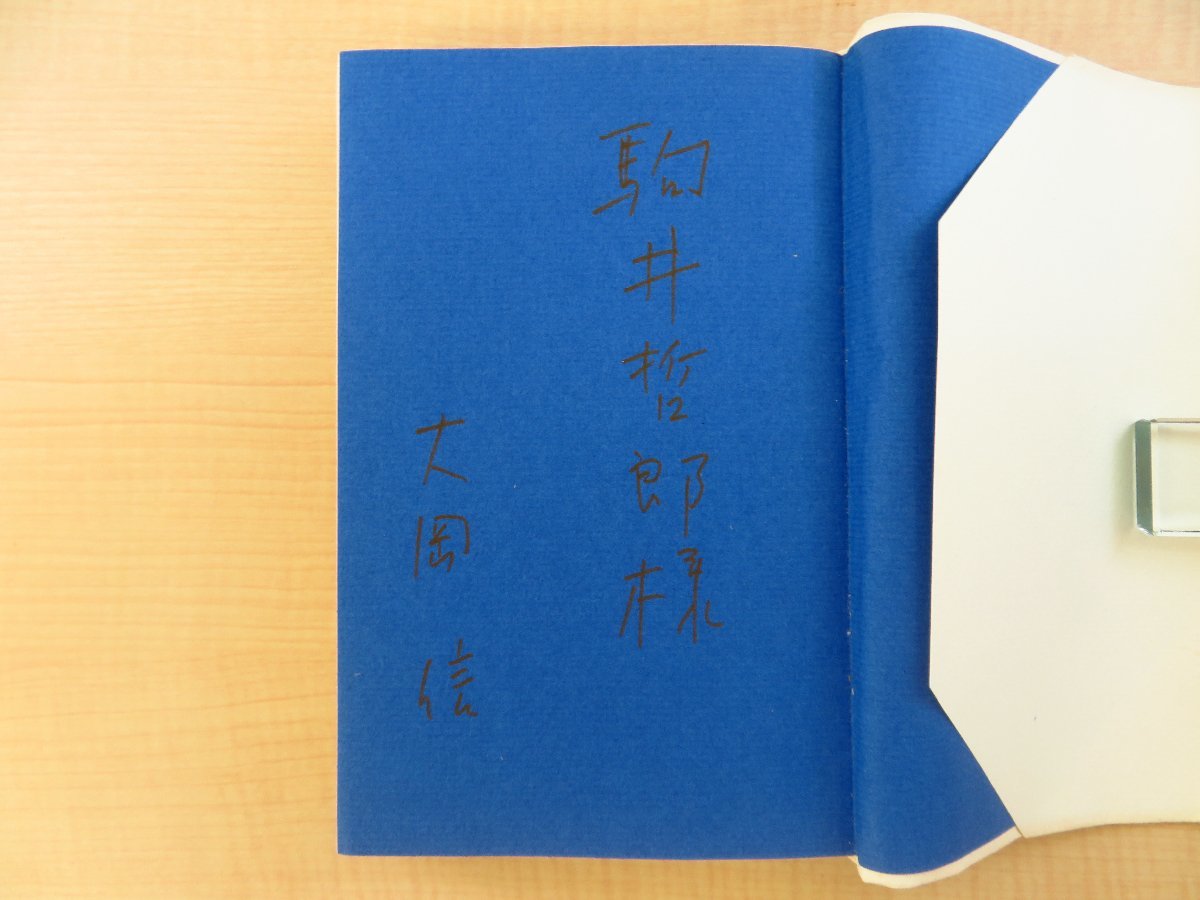 駒井哲郎様
大岡信